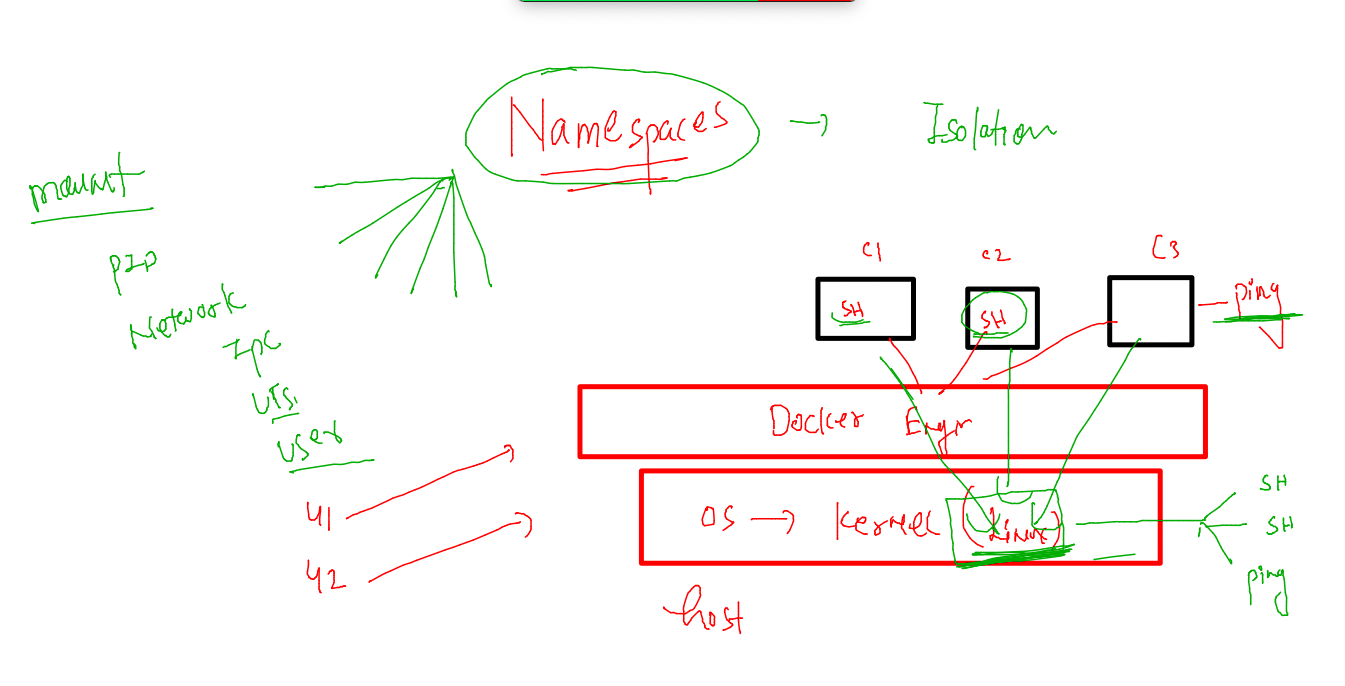 Namespaces → Isolation
mount
PID
Network
IPC
UTS
user
C1
C2
C3
SH
SH
ping
Docker Engn
OS → Kernel (Linux)
SH
SH
ping
U1
U2
host